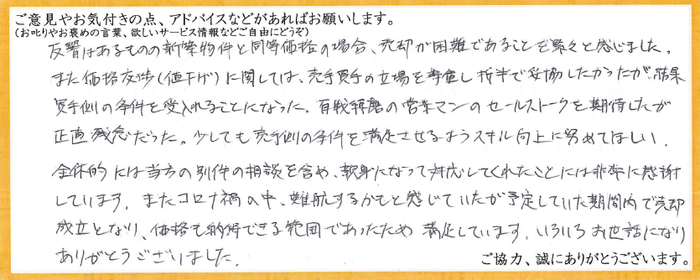 ご意見やお気付きの点、アドバイスなどがあればお願いします。
(お叱りやお褒めの言葉、欲しいサービス情報などご自由にどうぞ)
反響はあるものの新築物件と同等価格の場合、売却が困難であることを薄々と感じました。
また価格交渉(値下げ)に関しては、売手買手の立場を考慮し折半で妥協したかったが結果
買手側の条件を受入れることになった。百戦錬磨の営業マンのセールストークを期待したが
正直残念だった。少しでも売手側の条件を満足させるようスキル向上に努めてほしい。
全体的には当方の別件の相談を含め、親身になって対応してくれたことには非常に感謝
しています。またコロナ禍の中、難航するかもと感じていたが予定していた期間内で売却
成立となり、価格も納得できる範囲であったため満足しています。いろいろお世話になり
ありがとうございました。
ご協力、誠にありがとうございます。